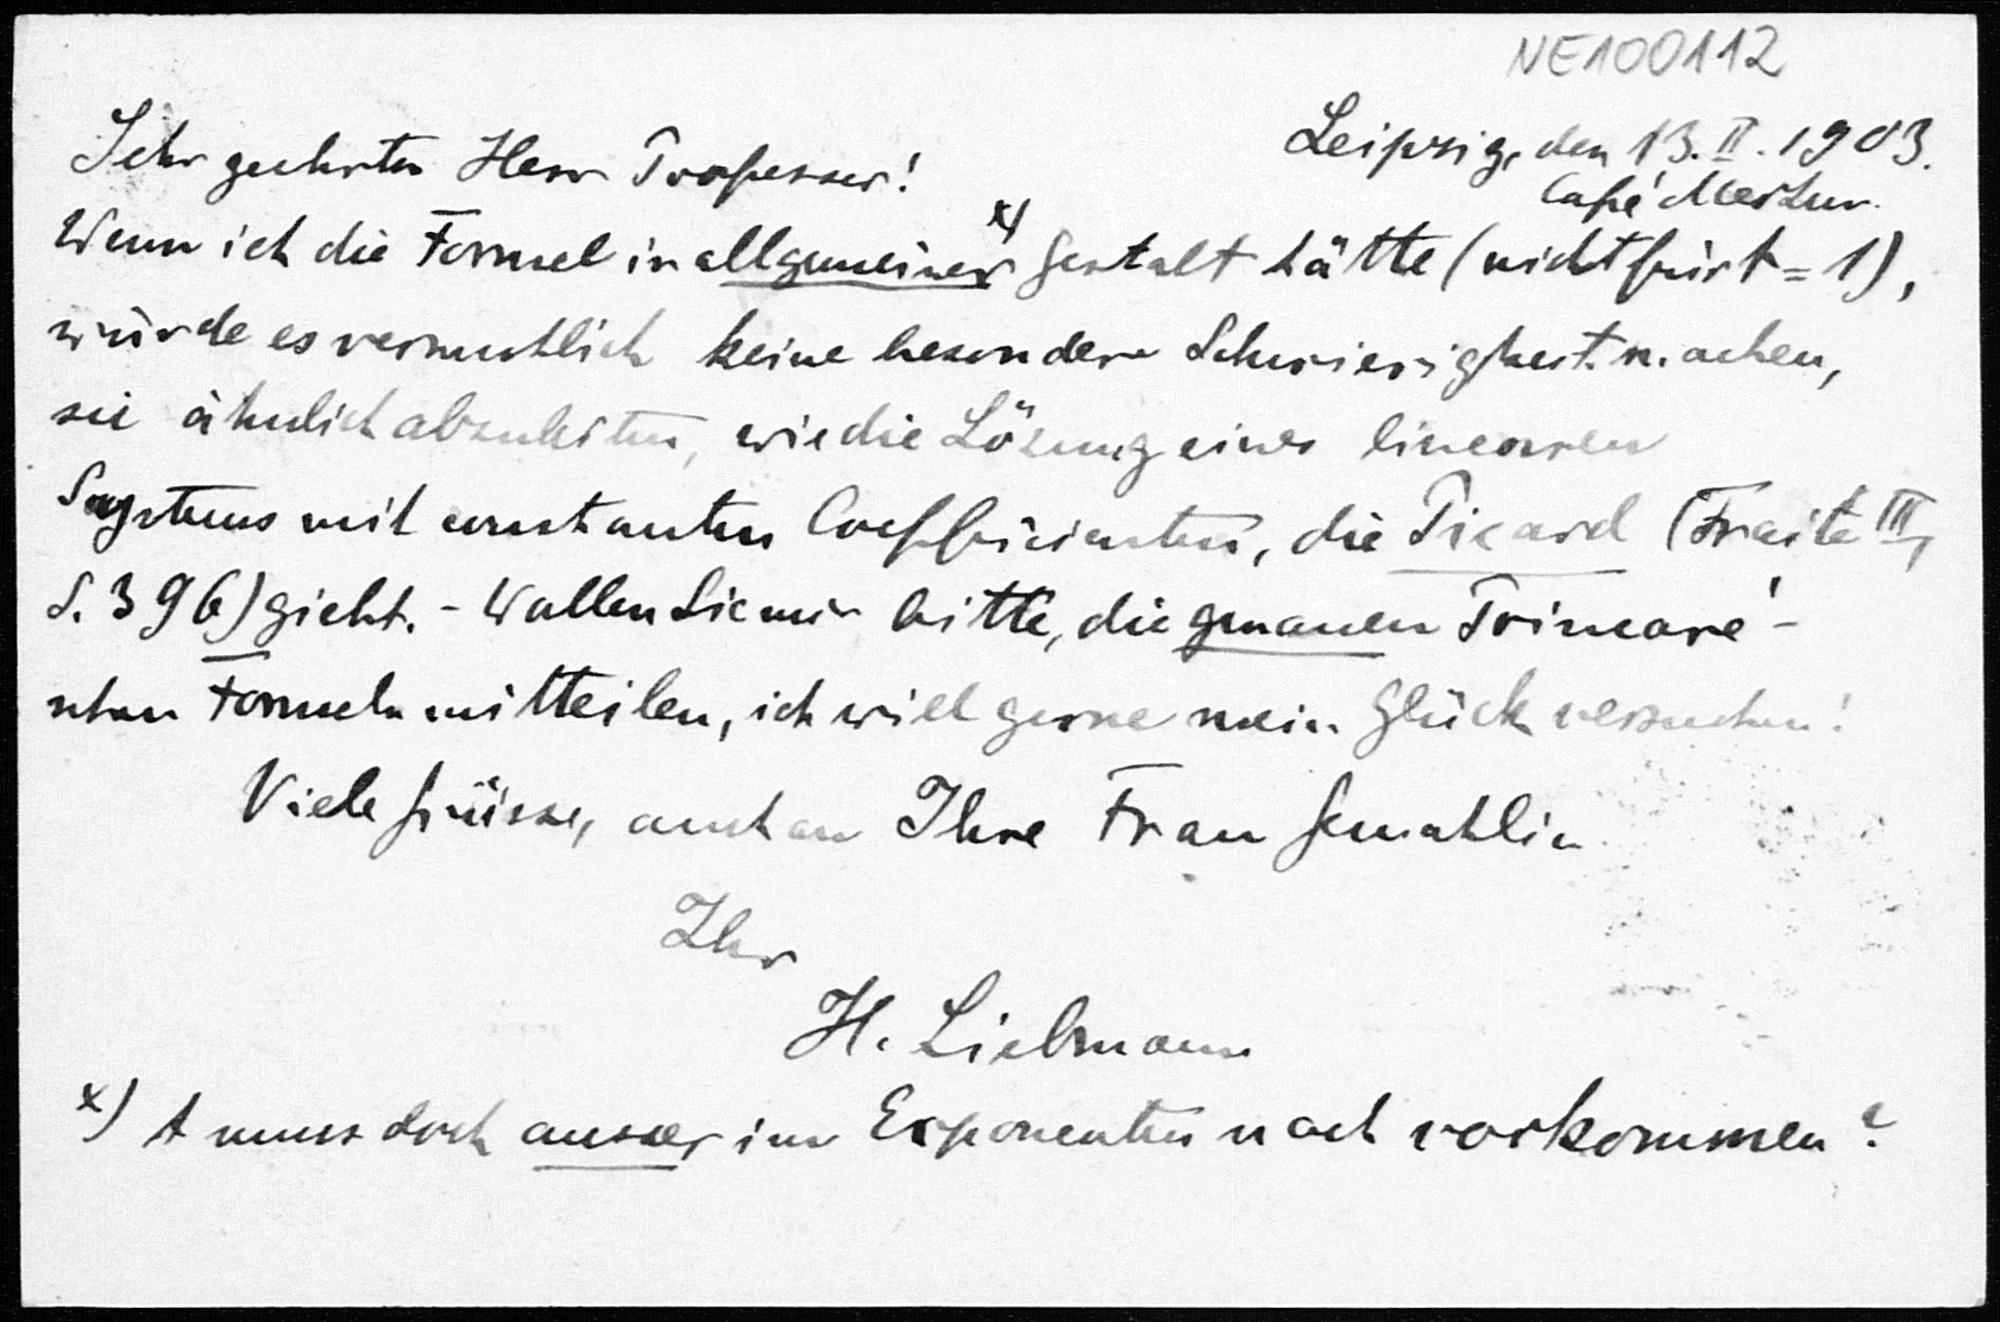 NE100112
Leipzig, den 13. II. 1903.
Café Merkur.
Sehr geehrter Herr Professor!
Wenn ich die Formel in allgemeiner x) Gestalt hätte (nicht für t = 1),
würde es vermuthlich keine besondere Schwierigkeit machen,
sie ähnlich abzuleiten, wie die Lösung eines linearen
Systems mit constanten Coefficienten, die Picard (Traité III,
S. 396) giebt. - Wollen Sie mir bitte, die genauen Poincaré-
schen Formeln mitteilen, ich will gerne mein Glück versuchen!
Viele Grüsse, auch an Ihre Frau Gemahlin
Ihr
H. Liebmann
x) t muss doch ausser im Exponenten noch vorkommen?